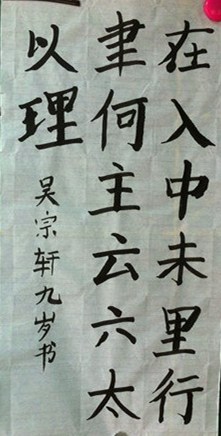 在入中未里行
聿何主云六太
以理
吴宗轩九岁书